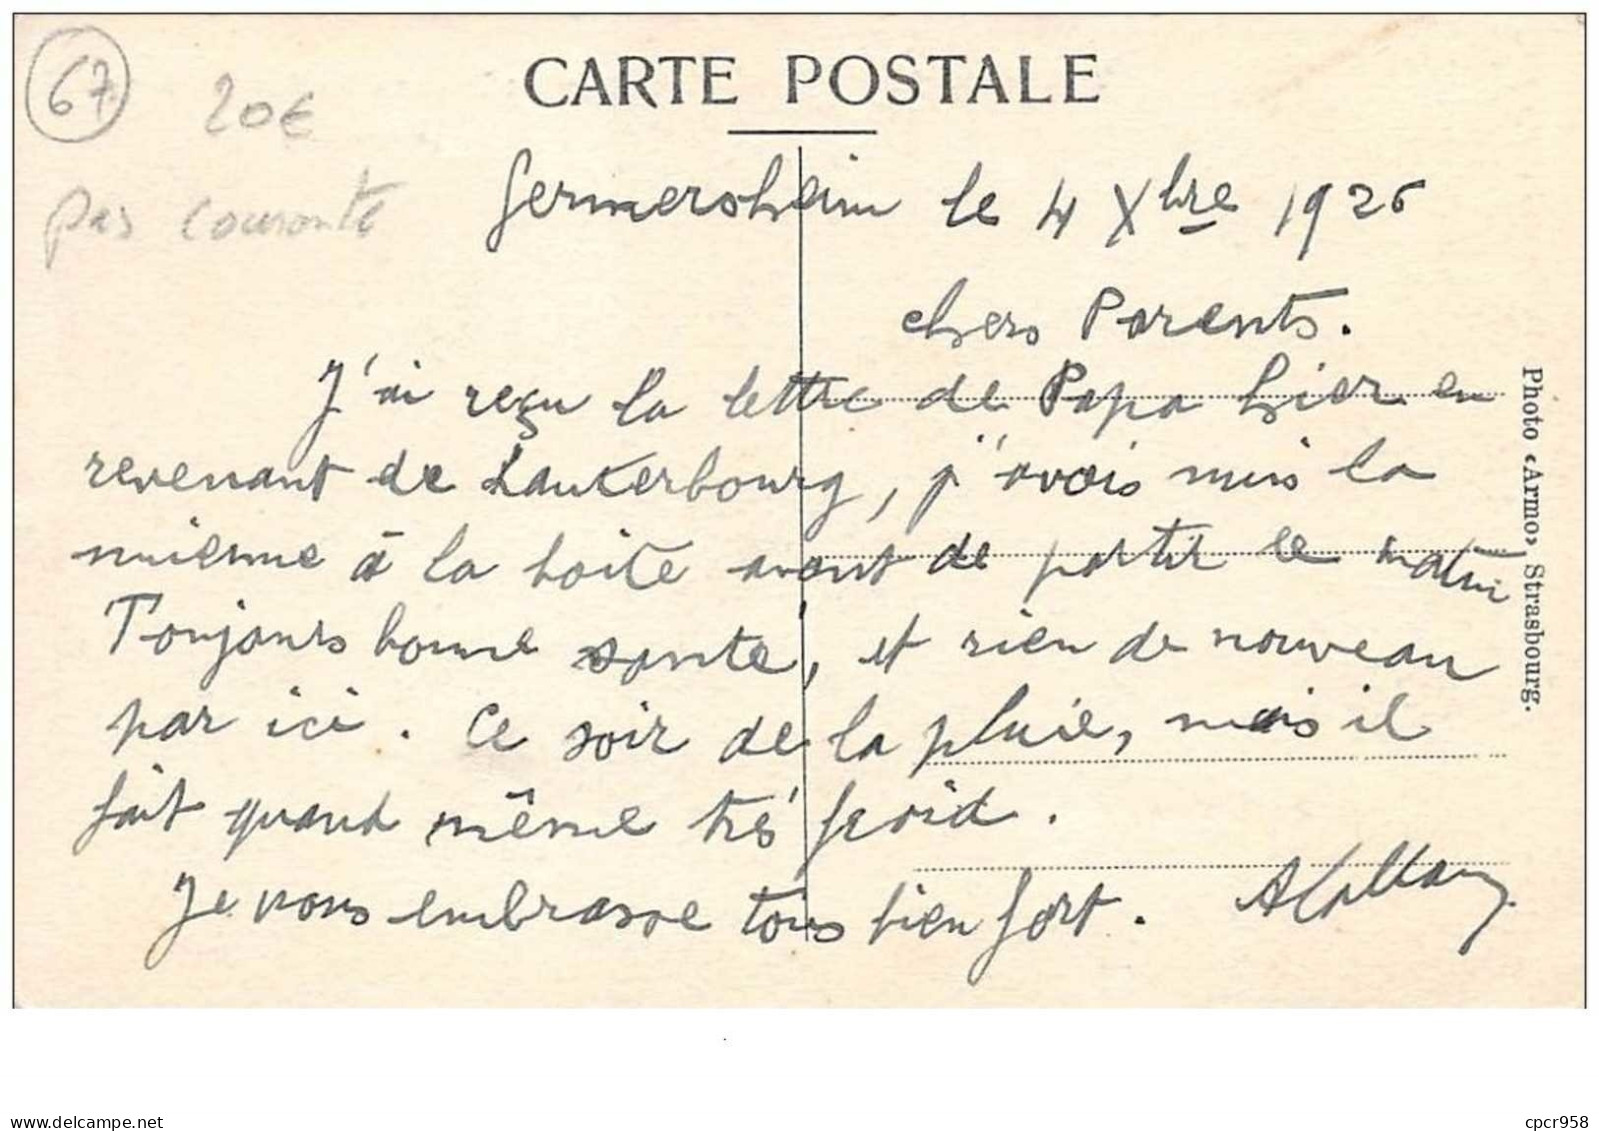 67
20€
CARTE POSTALE
pas courante
Germersheim le 4 Xbre 1926
chers Parents.
J'ai reçu la lettre de Papa hier en
revenant de Lauterbourg, j'avais mis la
mienne à la boite avant de partir le matin
Toujours bonne sante, et rien de nouveau
par ici. Ce soir de la pluie, mais il
fait quand même trés froid.
Je vous embrasse tous bien fort.
Photo «Armo» Strasbourg.
www.delcampe.net
cpcr958